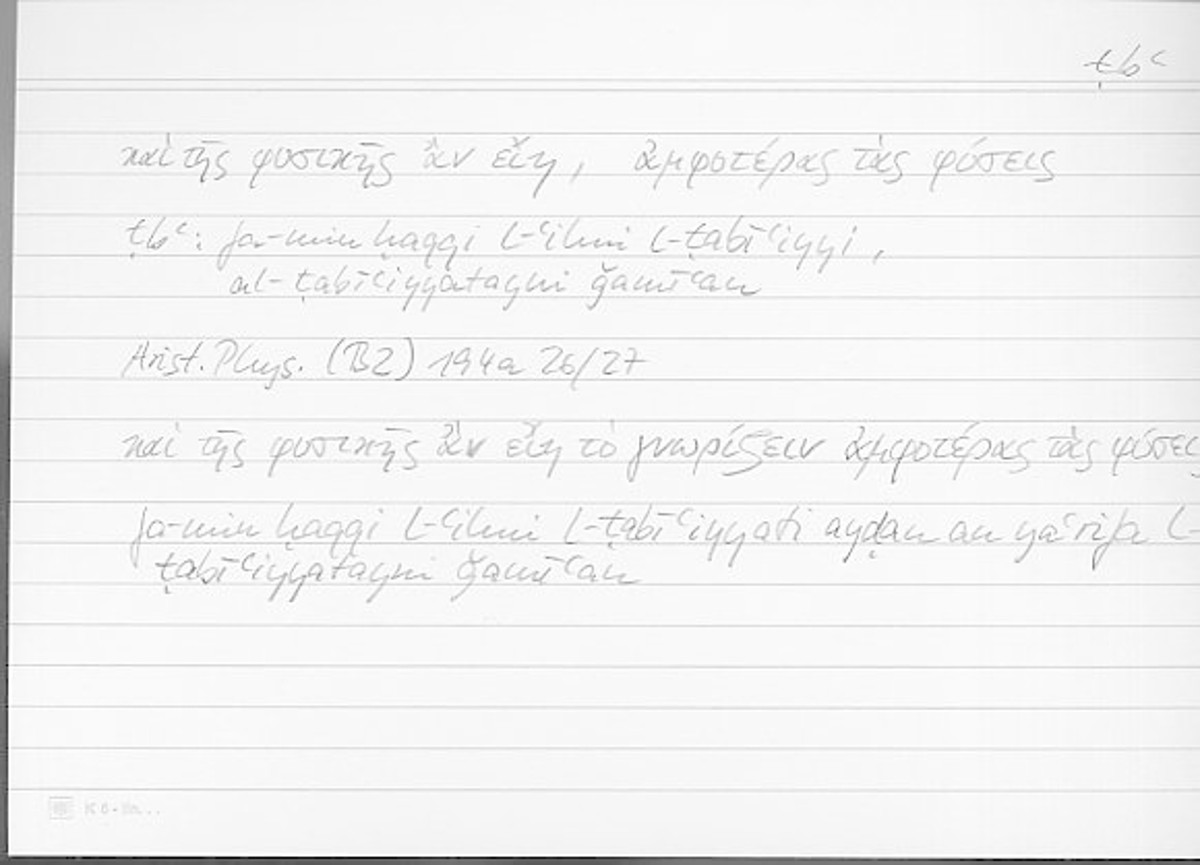 ṭbʿ
καὶ τῆς φυσικῆς ἂν εἴη, ἀμφοτέρας τὰς φύσεις
ṭbʿ: fa-min ḥaqqi l-ʿilmi l-ṭabīʿiyyi,
al-ṭabīʿiyyatayni ǧamīʿan
Arist. Phys. (B2) 194a 26/27
καὶ τῆς φυσικῆς ἂν εἴη τὸ γνωρίζειν ἀμφοτέρας τὰς φύσεις
fa-min ḥaqqi l-ʿilmi l-ṭabīʿiyyati ayḍan an yaʿrifa l-
ṭabīʿiyyatayni ǧamīʿan